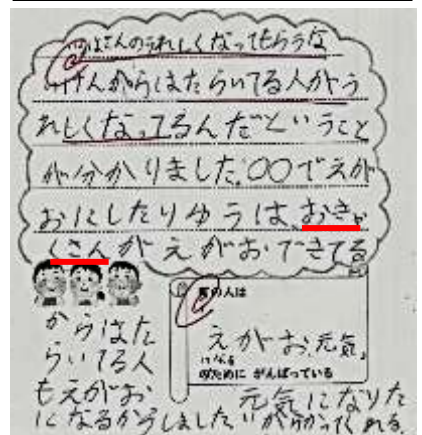 さんのうれしくなってもらうな
けんからはたらいてる人がう
れしくなってるんだということ
が分かりました。〇〇でえが
おにしたりゆうは、おきゃ
くさんがえがおできてる
からはた
らいてる人
もえがお
になるからしました
の人は
えがお、元気
になる
のために がんばっている
元気になりた
くれる。